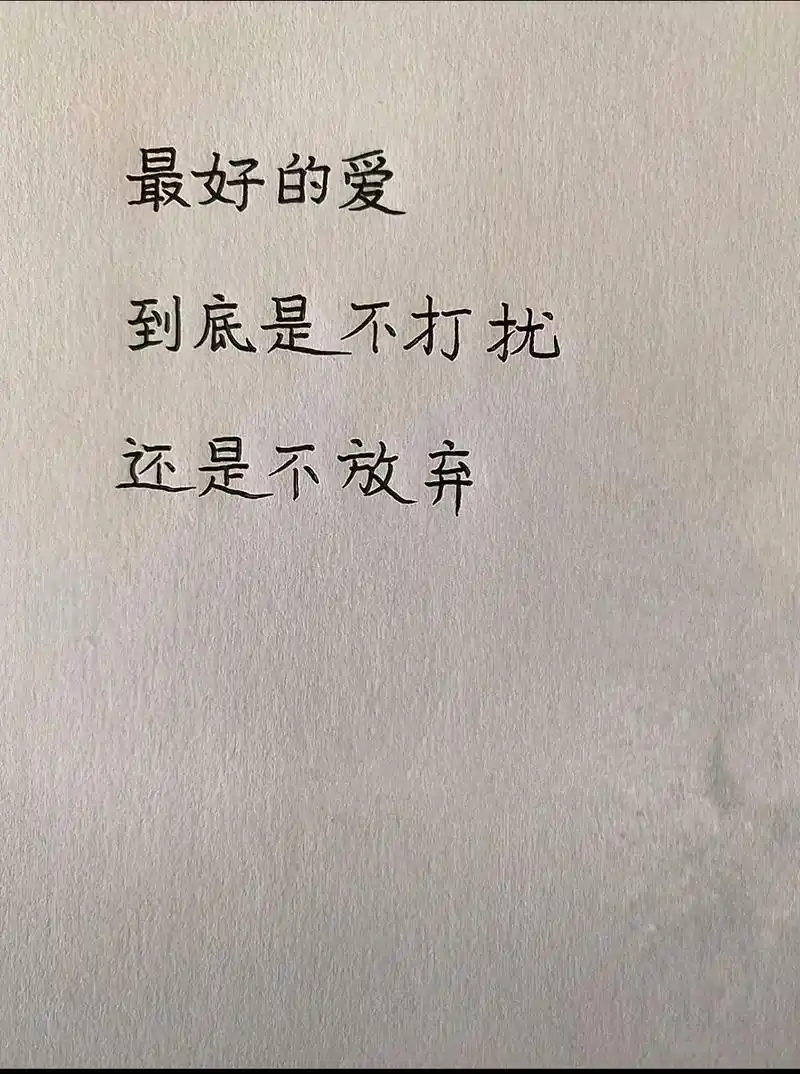 最好的爱
到底是不打扰
还是不放弃